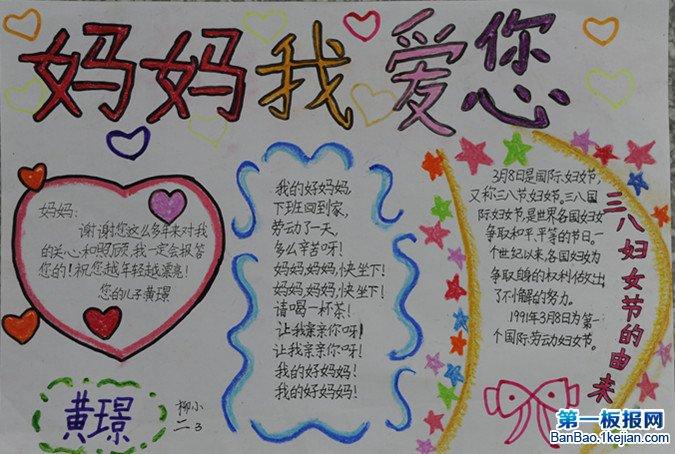 妈妈我爱您
妈妈:
谢谢您这么多年来对我
的关心和照顾,我一定会报答
您的!祝您越年轻越漂亮!
您的儿子黄璟
我的好妈妈,
下班回到家,
劳动了一天,
多么辛苦呀!
妈妈,妈妈,快坐下!
妈妈,妈妈,快坐下!
请喝一杯茶!
让我亲亲你呀!
让我亲亲你呀!
我的好妈妈!
我的好妈妈!
3月8日是国际妇女节,
又称三八节,妇女节。三八国
际妇女节,是世界各国妇女
争取和平、平等的节日。一
个世纪以来,各国妇女为
争取自身的权利做出
了不懈的努力。
1991年3月8日为第一
个国际劳动妇女节。
三八妇女节的由来
黄璟
柳小
二3
第一板报网
BanBao.1kejian.com